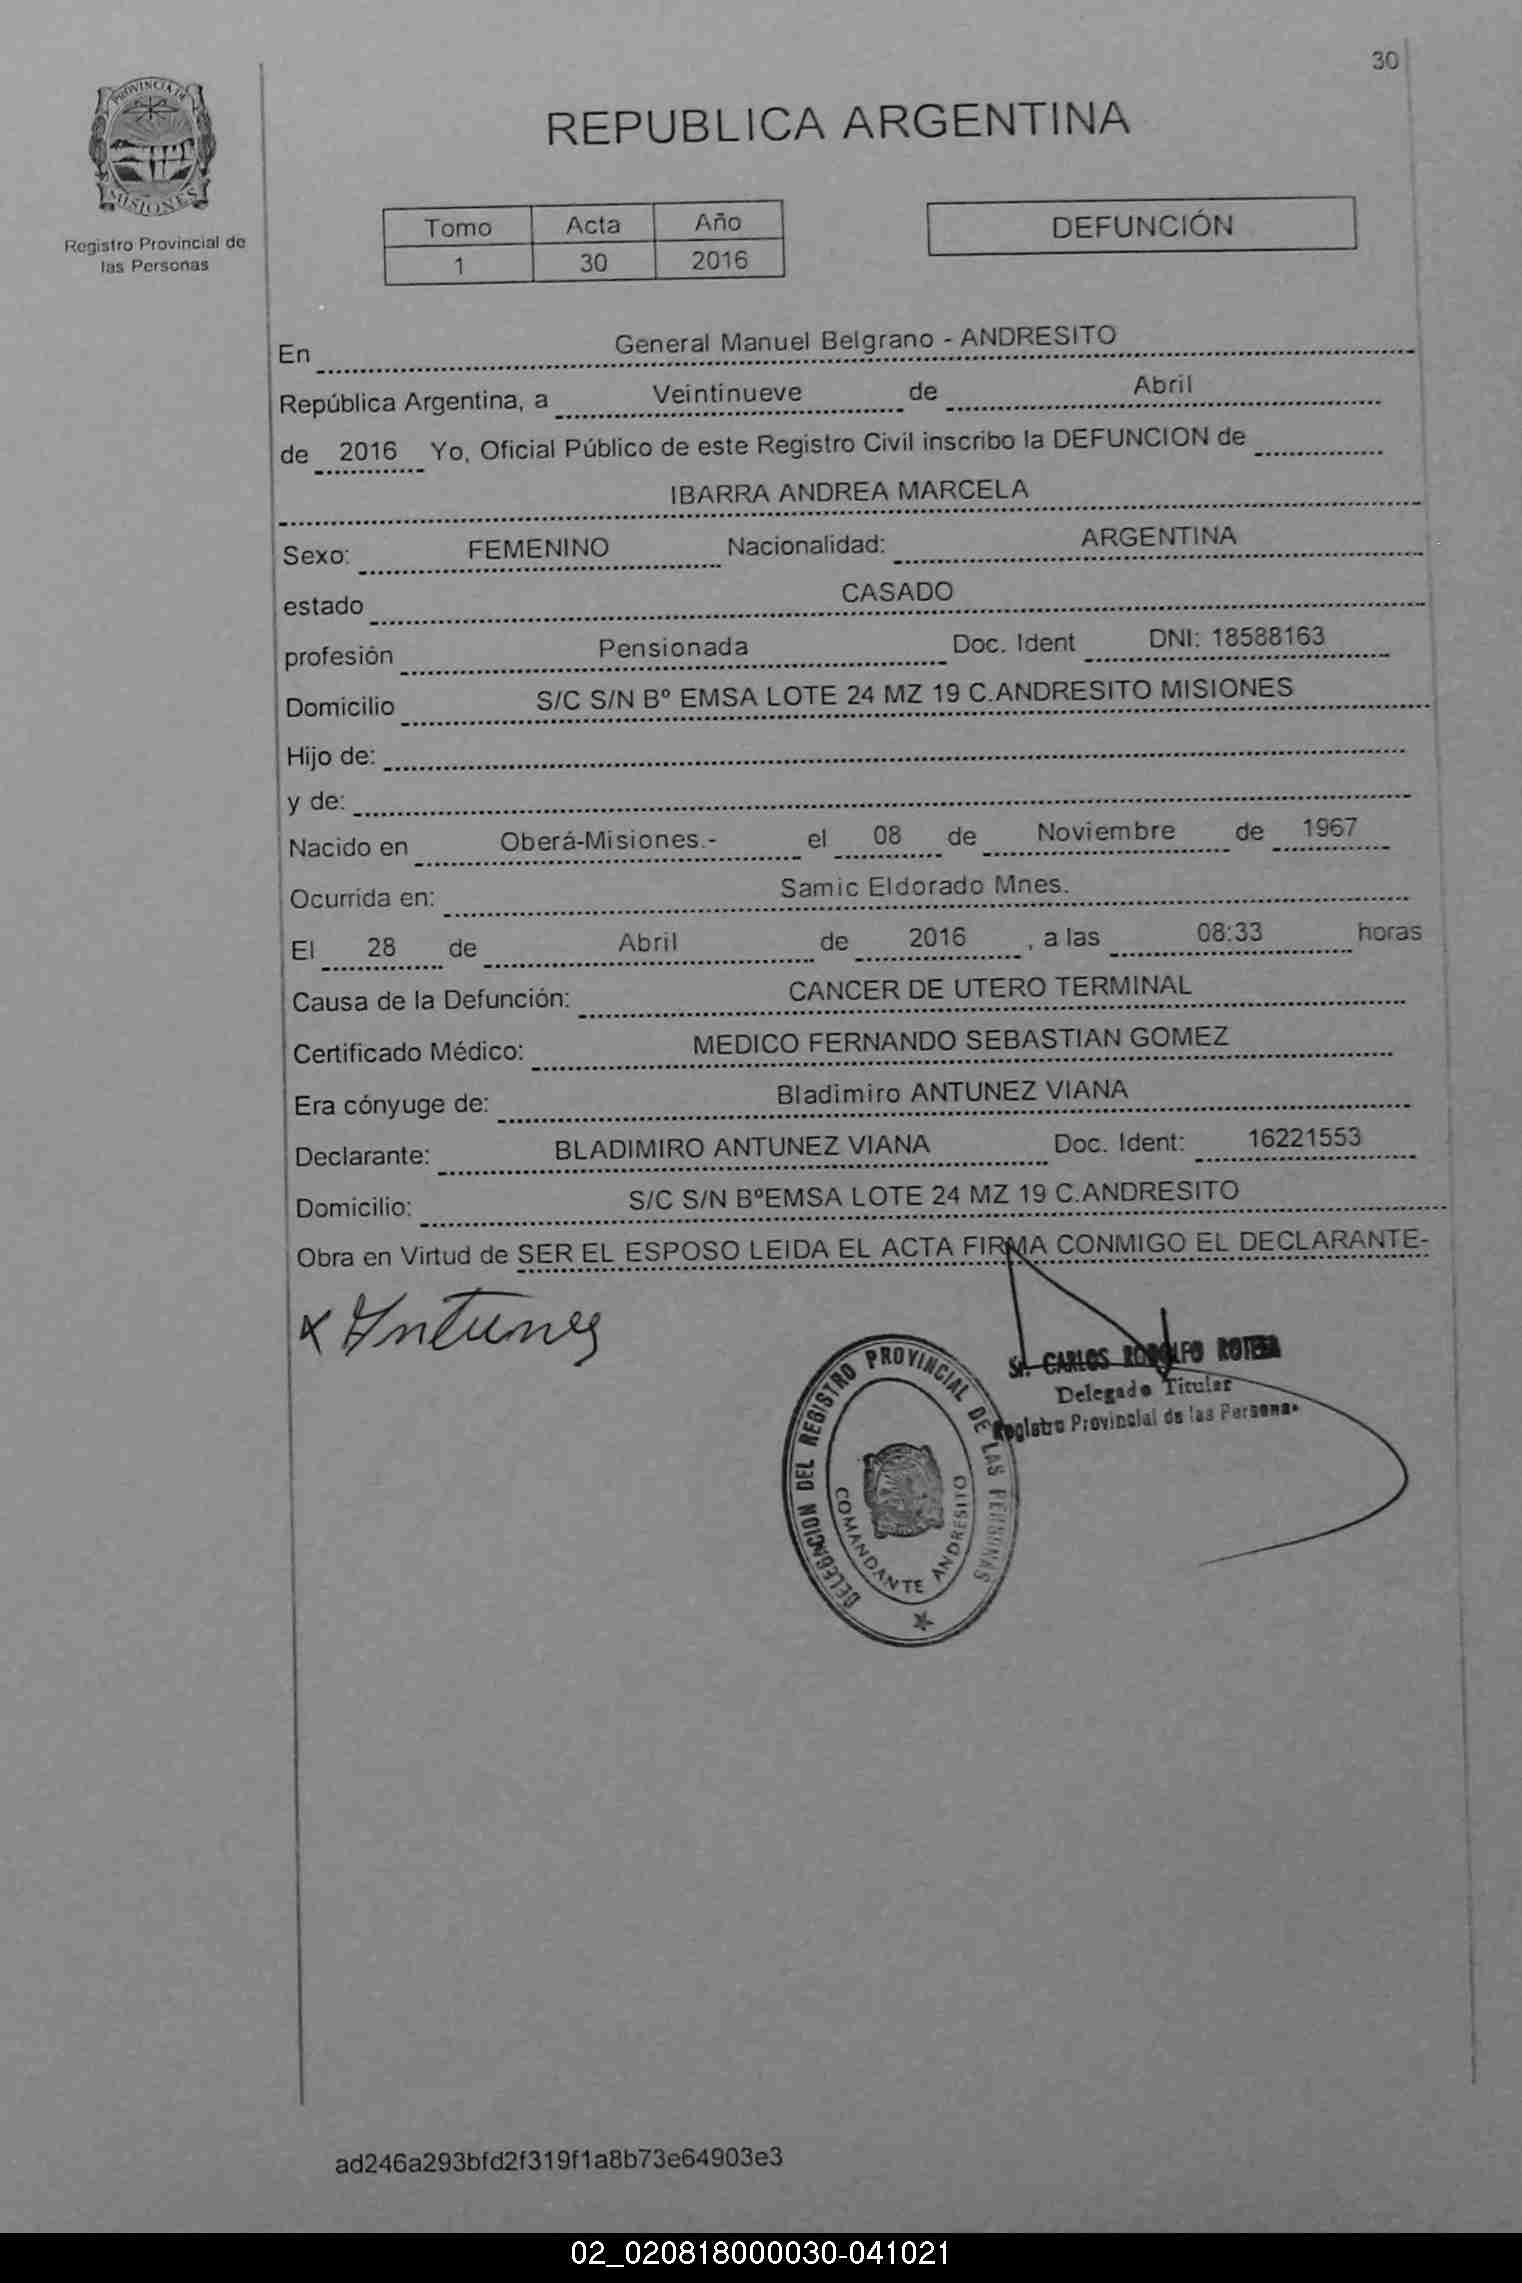 30
PROVINCIA DE
MISIONES
Registro Provincial de
las Personas
REPUBLICA ARGENTINA
Tomo Acta Año
1 30 2016
DEFUNCIÓN
En General Manuel Belgrano - ANDRESITO
República Argentina, a Veintinueve de Abril
de 2016 Yo, Oficial Público de este Registro Civil inscribo la DEFUNCION de
IBARRA ANDREA MARCELA
Sexo: FEMENINO Nacionalidad: ARGENTINA
estado CASADO
profesión Pensionada Doc. Ident DNI: 18588163
Domicilio S/C S/N Bº EMSA LOTE 24 MZ 19 C.ANDRESITO MISIONES
Hijo de:
y de:
Nacido en Oberá-Misiones.- el 08 de Noviembre de 1967
Ocurrida en: Samic Eldorado Mnes.
El 28 de Abril de 2016 , a las 08:33 horas
Causa de la Defunción: CANCER DE UTERO TERMINAL
Certificado Médico: MEDICO FERNANDO SEBASTIAN GOMEZ
Era cónyuge de: Bladimiro ANTUNEZ VIANA
Declarante: BLADIMIRO ANTUNEZ VIANA Doc. Ident: 16221553
Domicilio: S/C S/N BºEMSA LOTE 24 MZ 19 C.ANDRESITO
Obra en Virtud de SER EL ESPOSO LEIDA EL ACTA FIRMA CONMIGO EL DECLARANTE-
x Antunez
Sr. CARLOS RODOLFO
Delegado Titular
Registro Provincial de las Personas
DELEGACION DEL REGISTRO PROVINCIAL DE LAS PERSONAS
COMANDANTE ANDRESITO
ad246a293bfd2f319f1a8b73e64903e3
02_020818000030-041021